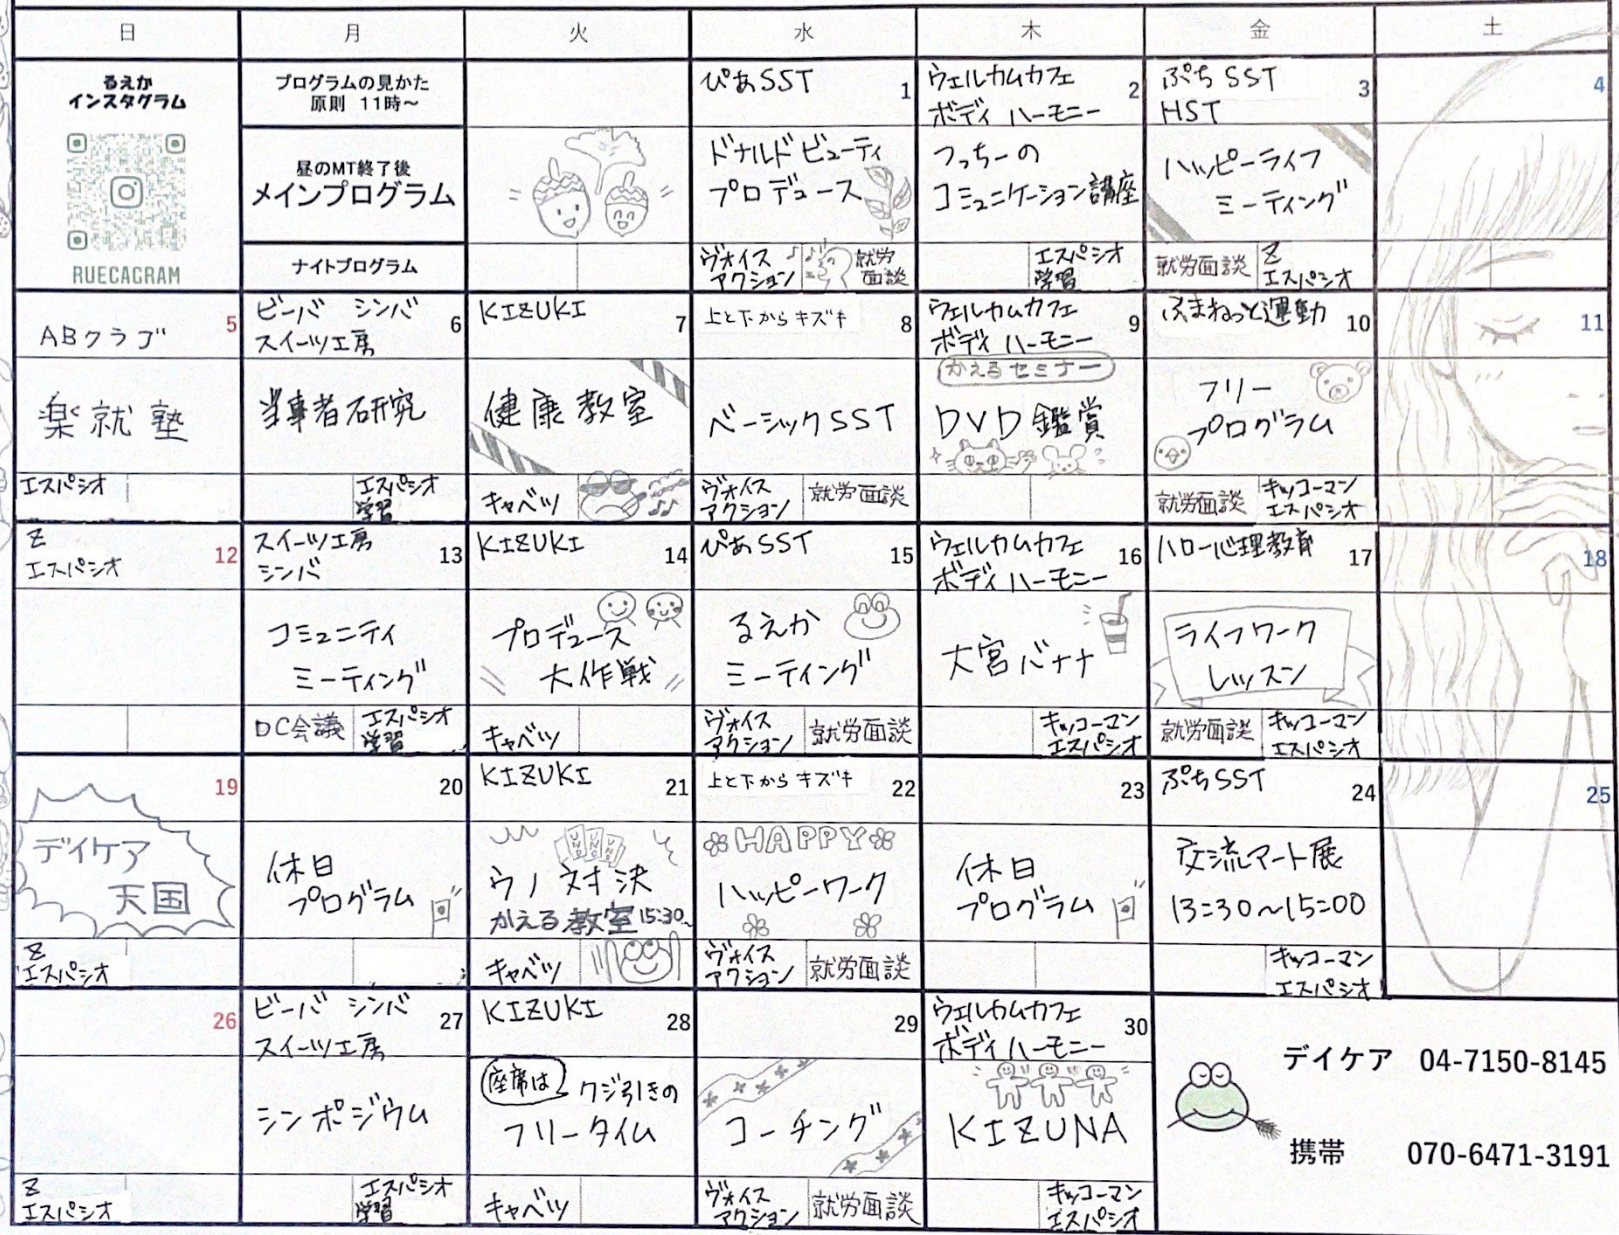 日 月 火 水 木 金 土
るえか
インスタグラム
RUECAGRAM
プログラムの見かた
原則 11時〜
昼のMT終了後
メインプログラム
ナイトプログラム
ぴあSST 1
ドナルドビューティ
プロデュース
ヴォイス
アクション
就労
面談
ウェルカムカフェ 2
ボディ ハーモニー
つっちーの
コミュニケーション講座
エスパシオ
学習
ぷちSST 3
HST
ハッピーライフ
ミーティング
就労面談
Z
エスパシオ
4
ABクラブ 5
楽就塾
エスパシオ
ビーバ シンバ 6
スイーツ工房
当事者研究
エスパシオ
学習
KIZUKI 7
健康教室
キャベツ
上と下からキズキ 8
ベーシックSST
ヴォイス
アクション
就労面談
ウェルカムカフェ 9
ボディ ハーモニー
かえるセミナー
DVD鑑賞
ふまねっと運動 10
フリー
プログラム
就労面談
キッコーマン
エスパシオ
11
Z
エスパシオ 12
スイーツ工房 13
シンバ
コミュニティ
ミーティング
DC会議
エスパシオ
学習
KIZUKI 14
プロデュース
大作戦
キャベツ
ぴあSST 15
るえか
ミーティング
ヴォイス
アクション
就労面談
ウェルカムカフェ 16
ボディ ハーモニー
大宮バナナ
キッコーマン
エスパシオ
ハロー心理教育 17
ライフワーク
レッスン
就労面談
キッコーマン
エスパシオ
18
19
デイケア
天国
Z
エスパシオ
20
休日
プログラム
KIZUKI 21
UNO UNO UNO
ウノ対決
かえる教室15:30〜
キャベツ
上と下からキズキ 22
HAPPY
ハッピーワーク
ヴォイス
アクション
就労面談
23
休日
プログラム
ぷちSST 24
交流アート展
13:30〜15:00
キッコーマン
エスパシオ
25
26
Z
エスパシオ
ビーバ シンバ 27
スイーツ工房
シンポジウム
エスパシオ
学習
KIZUKI 28
座席は
クジ引きの
フリータイム
キャベツ
29
コーチング
ヴォイス
アクション
就労面談
ウェルカムカフェ 30
ボディ ハーモニー
KIZUNA
キッコーマン
エスパシオ
デイケア 04-7150-8145
携帯 070-6471-3191